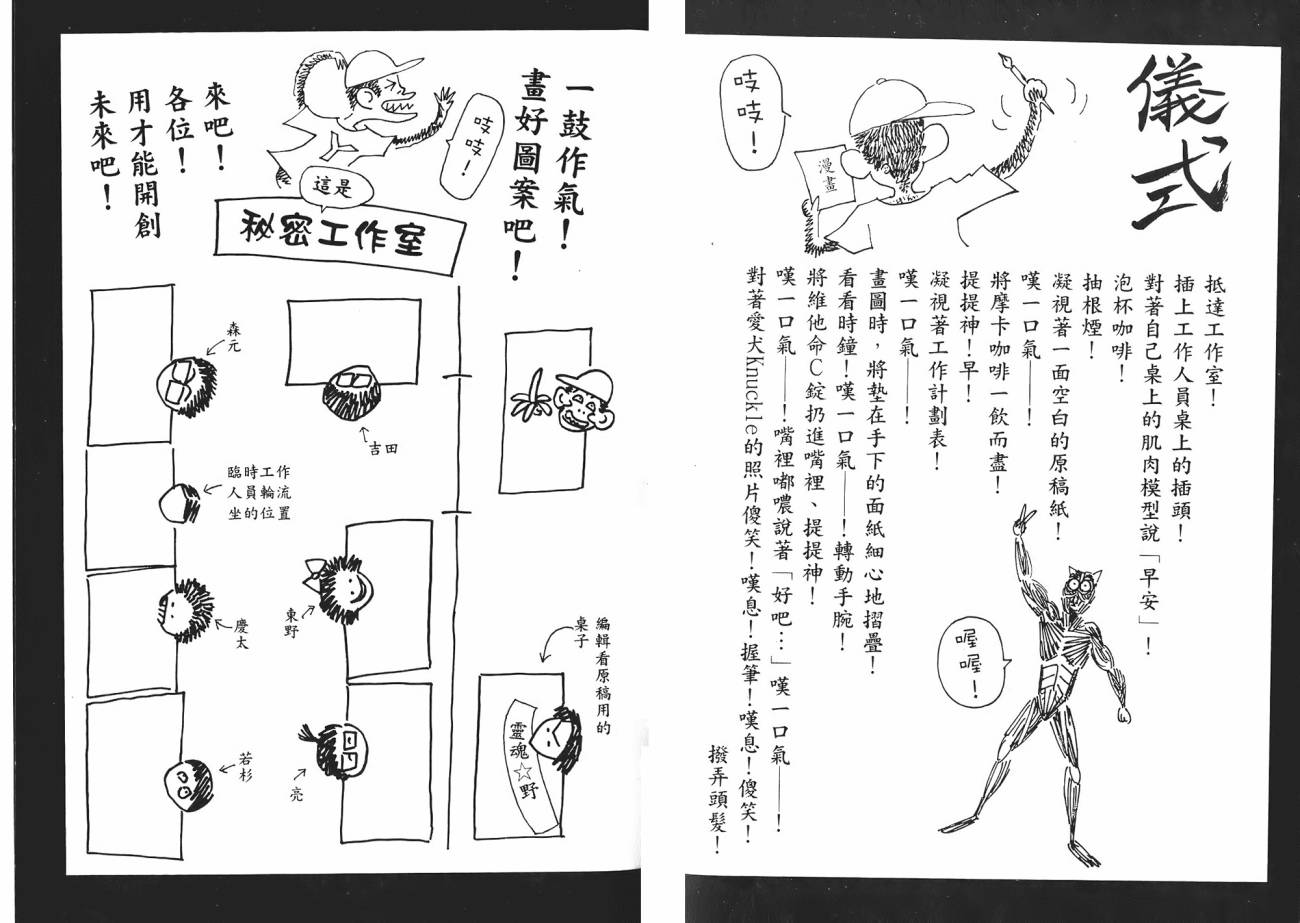 儀式
吱吱！
漫畫
抵達工作室！
插上工作人員桌上的插頭！
對著自己桌上的肌肉模型說「早安」！
泡杯咖啡！
抽根煙！
凝視著一面空白的原稿紙！
嘆一口氣——！
將摩卡咖啡一飲而盡！
提提神！早！
凝視著工作計劃表！
嘆一口氣——！
畫圖時，將墊在手下的面紙細心地摺疊！
看看時鐘！嘆一口氣——！轉動手腕！
將維他命C錠扔進嘴裡、提提神！
嘆一口氣——！嘴裡嘟噥說著「好吧…」嘆一口氣——！
對著愛犬Knuckle的照片傻笑！嘆息！握筆！嘆息！傻笑！
撥弄頭髮！
喔喔！
一鼓作氣！
畫好圖案吧！
吱吱！
這是
秘密工作室
來吧！
各位！
用才能開創
未來吧！
森元
吉田
臨時工作
人員輪流
坐的位置
東野
慶太
若杉
亮
編輯看原稿用的
桌子
靈魂☆野